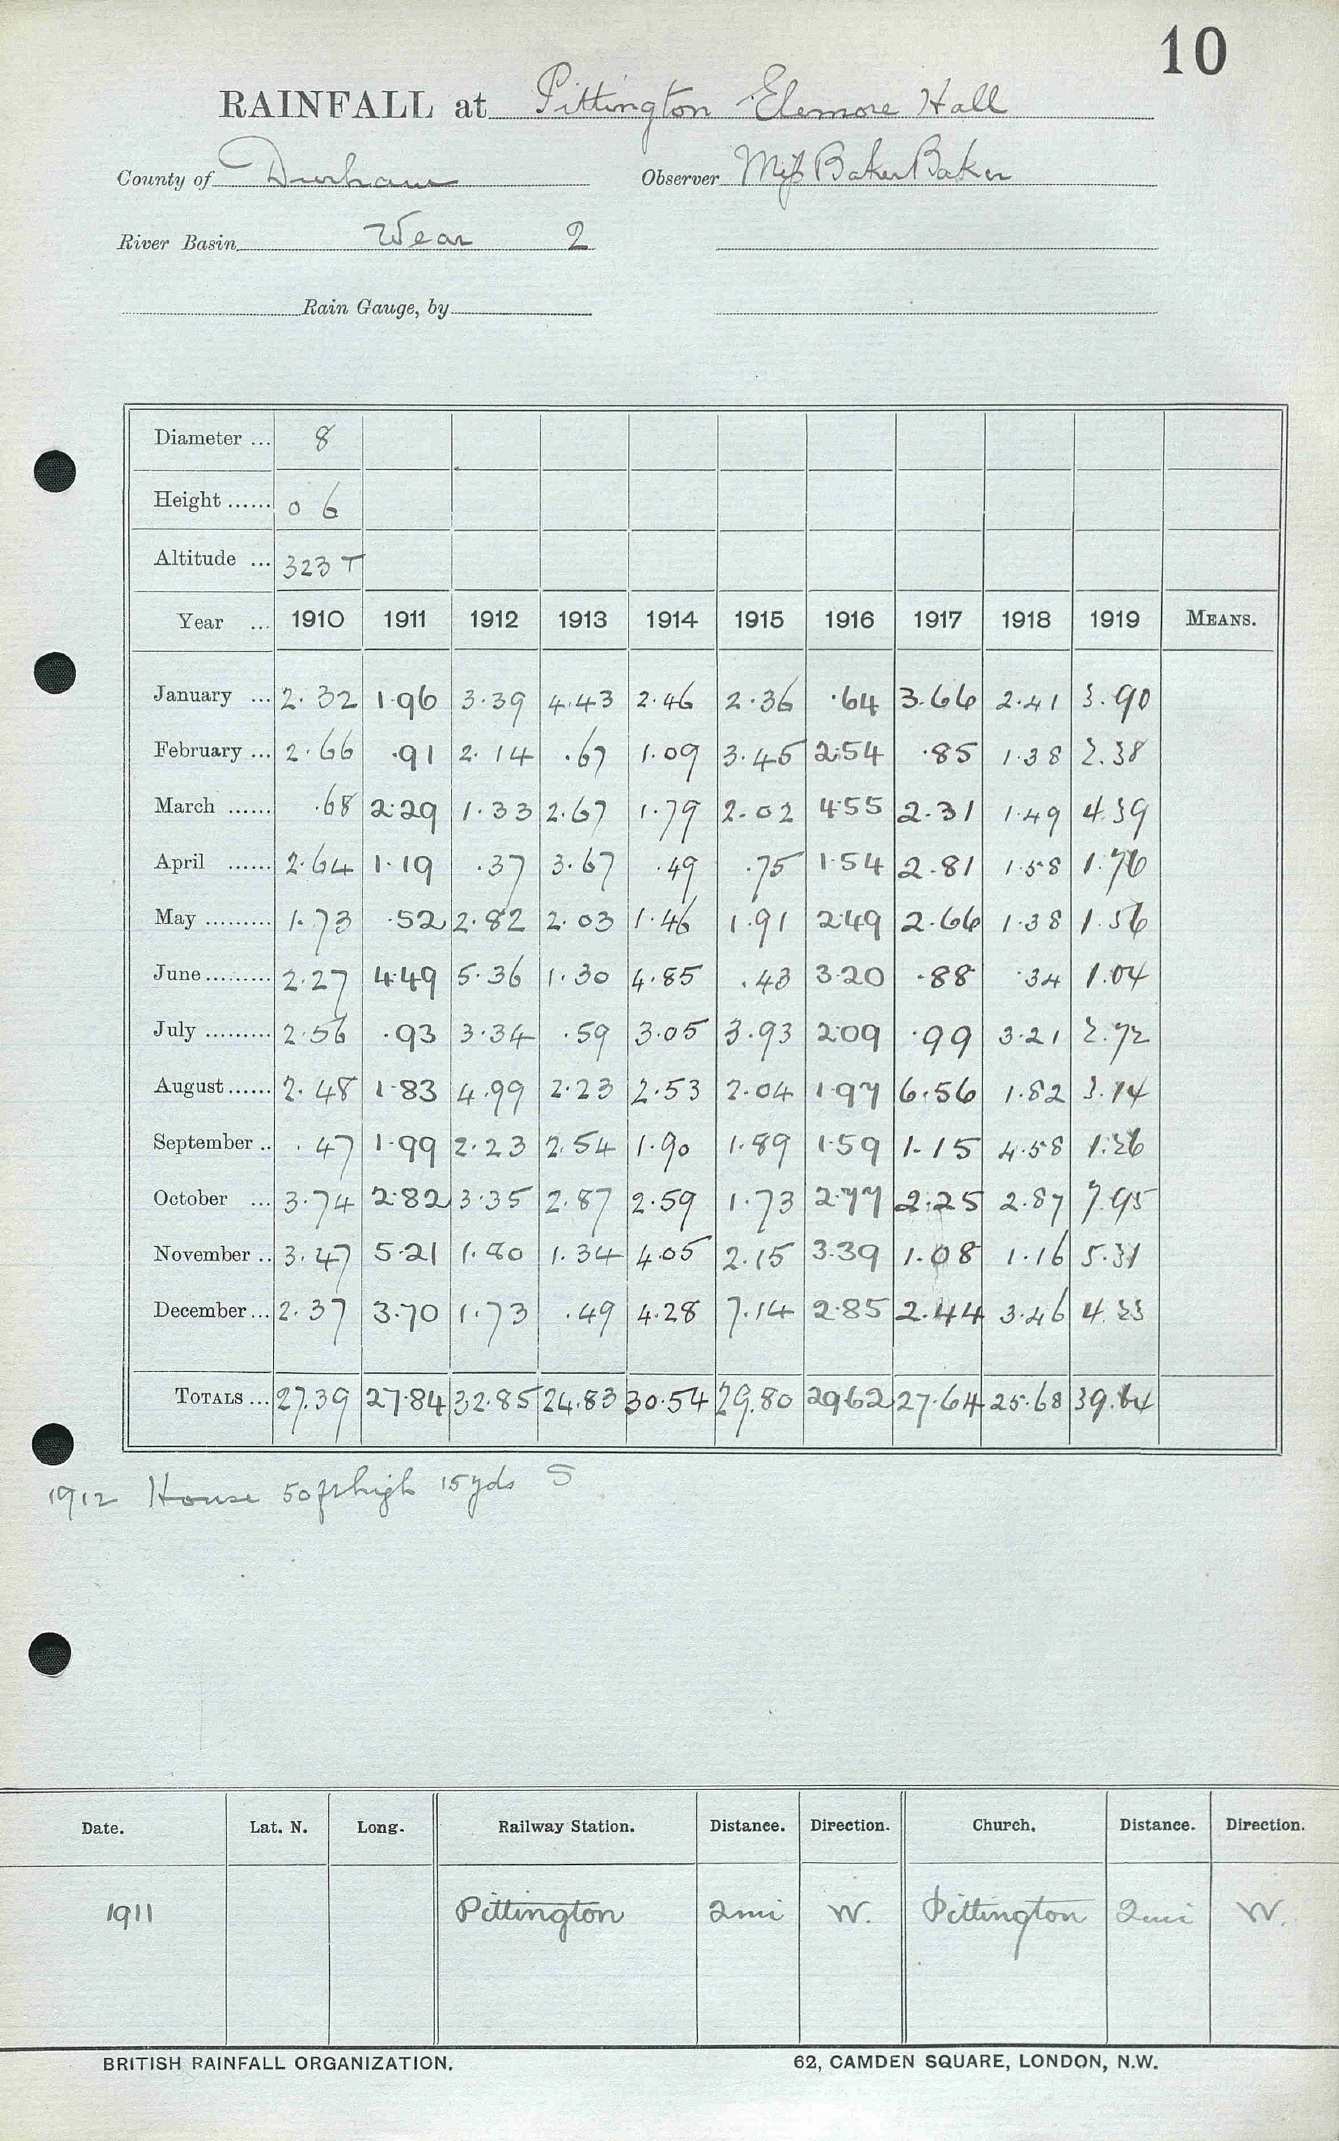 10
RAINFALL at Pittington Elemore Hall
County of Durham Observer Miss Baker Baker
River Basin Wear 2
Rain Gauge, by
Diameter ... 8
Height ...... 0 6
Altitude ... 323 T
Year ... 1910 1911 1912 1913 1914 1915 1916 1917 1918 1919 MEANS.
January ... 2.32 1.96 3.39 4.43 2.46 2.36 .64 3.66 2.41 3.90
February ... 2.66 .91 2.14 .67 1.09 3.45 2.54 .85 1.38 2.38
March ...... .68 2.29 1.33 2.67 1.79 2.02 4.55 2.31 1.49 4.39
April ...... 2.64 1.19 .37 3.67 .49 .75 1.54 2.81 1.58 1.76
May ......... 1.73 .52 2.82 2.03 1.46 1.91 2.49 2.66 1.38 1.56
June ......... 2.27 4.49 5.36 1.30 4.85 .43 3.20 .88 .34 1.04
July ......... 2.56 .93 3.34 .59 3.05 3.93 2.09 .99 3.21 2.72
August ...... 2.48 1.83 4.99 2.23 2.53 2.04 1.97 6.56 1.82 3.14
September .. .47 1.99 2.23 2.54 1.90 1.89 1.59 1.15 4.58 1.26
October ... 3.74 2.82 3.35 2.87 2.59 1.73 2.77 2.25 2.87 7.95
November .. 3.47 5.21 1.80 1.34 4.05 2.15 3.39 1.08 1.16 5.31
December ... 2.37 3.70 1.73 .49 4.28 7.14 2.85 2.44 3.46 4.23
TOTALS ... 27.39 27.84 32.85 24.83 30.54 29.80 29.62 27.64 25.68 39.64
1912 House 50ft high 15yds S
Date. Lat. N. Long. Railway Station. Distance. Direction. Church. Distance. Direction.
1911 Pittington 2mi W. Pittington 2mi W.
BRITISH RAINFALL ORGANIZATION. 62, CAMDEN SQUARE, LONDON, N.W.